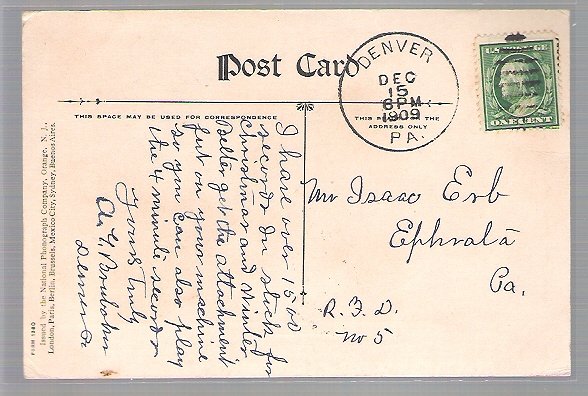 Post Card
THIS SPACE MAY BE USED FOR CORRESPONDENCE
THIS SPACE THE
ADDRESS ONLY
DENVER
DEC
15
6 PM
1909
PA.
U.S. POSTAGE
ONE CENT
Mr Isaac Erb
Ephrata
Pa.
R. F. D.
No 5
I have over 1500
records in stock for
Christmas and Winter
Better get the attachment
put on your machine
so you can also play
the 4 minute records
Yours Truly
Brubaker
Denver
Issued by the National Phonograph Company, Orange, N. J.,
London, Paris, Berlin, Brussels, Mexico City, Sydney, Buenos Aires.
FORM 1360